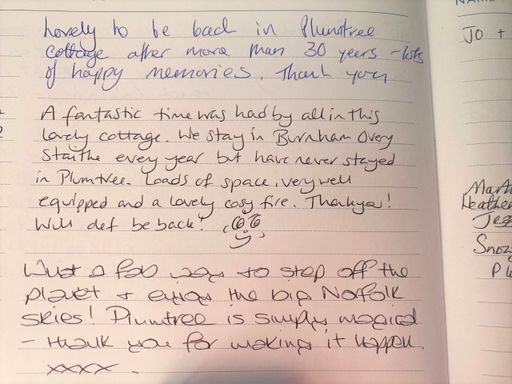 Lovely to be back in Plumtree
cottage after more than 30 years - lots
of happy memories. Thank you
A fantastic time was had by all in this
lovely cottage. We stay in Burnham Overy
Staithe every year but have never stayed
in Plumtree. Loads of space, very well
equipped and a lovely cosy fire. Thankyou!
Will def be back!
What a fab way to step off the
planet + enjoy the big Norfolk
skies! Plumtree is simply magical
- thank you for making it happen.
xxxx.
NAME
JO +
Heather
Jess